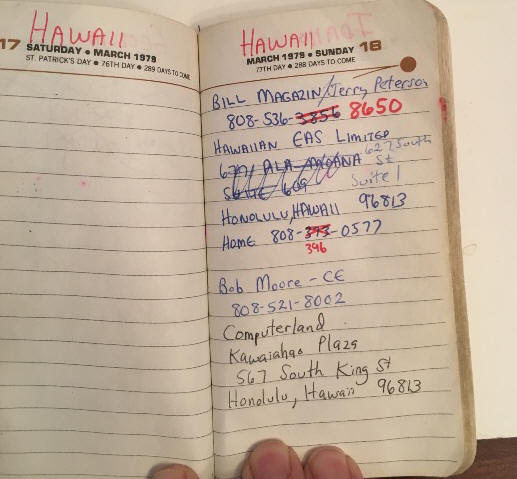 HAWAII
17 SATURDAY • MARCH 1979
ST. PATRICK'S DAY • 76TH DAY • 289 DAYS TO COME
HAWAII
MARCH 1979 • SUNDAY 18
77TH DAY • 288 DAYS TO COME
BILL MAGAZIN/Jerry Peterson
808-536-3856 8650
HAWAIIAN EAS LIMITED
677 ALA MOANA 627 South St
SUITE 609 Suite 1
HONOLULU, HAWAII 96813
HOME 808-393-0577
396
Bob Moore - CE
808-521-8002
Computerland
Kawaiahao Plaza
567 South King St
Honolulu, Hawaii 96813